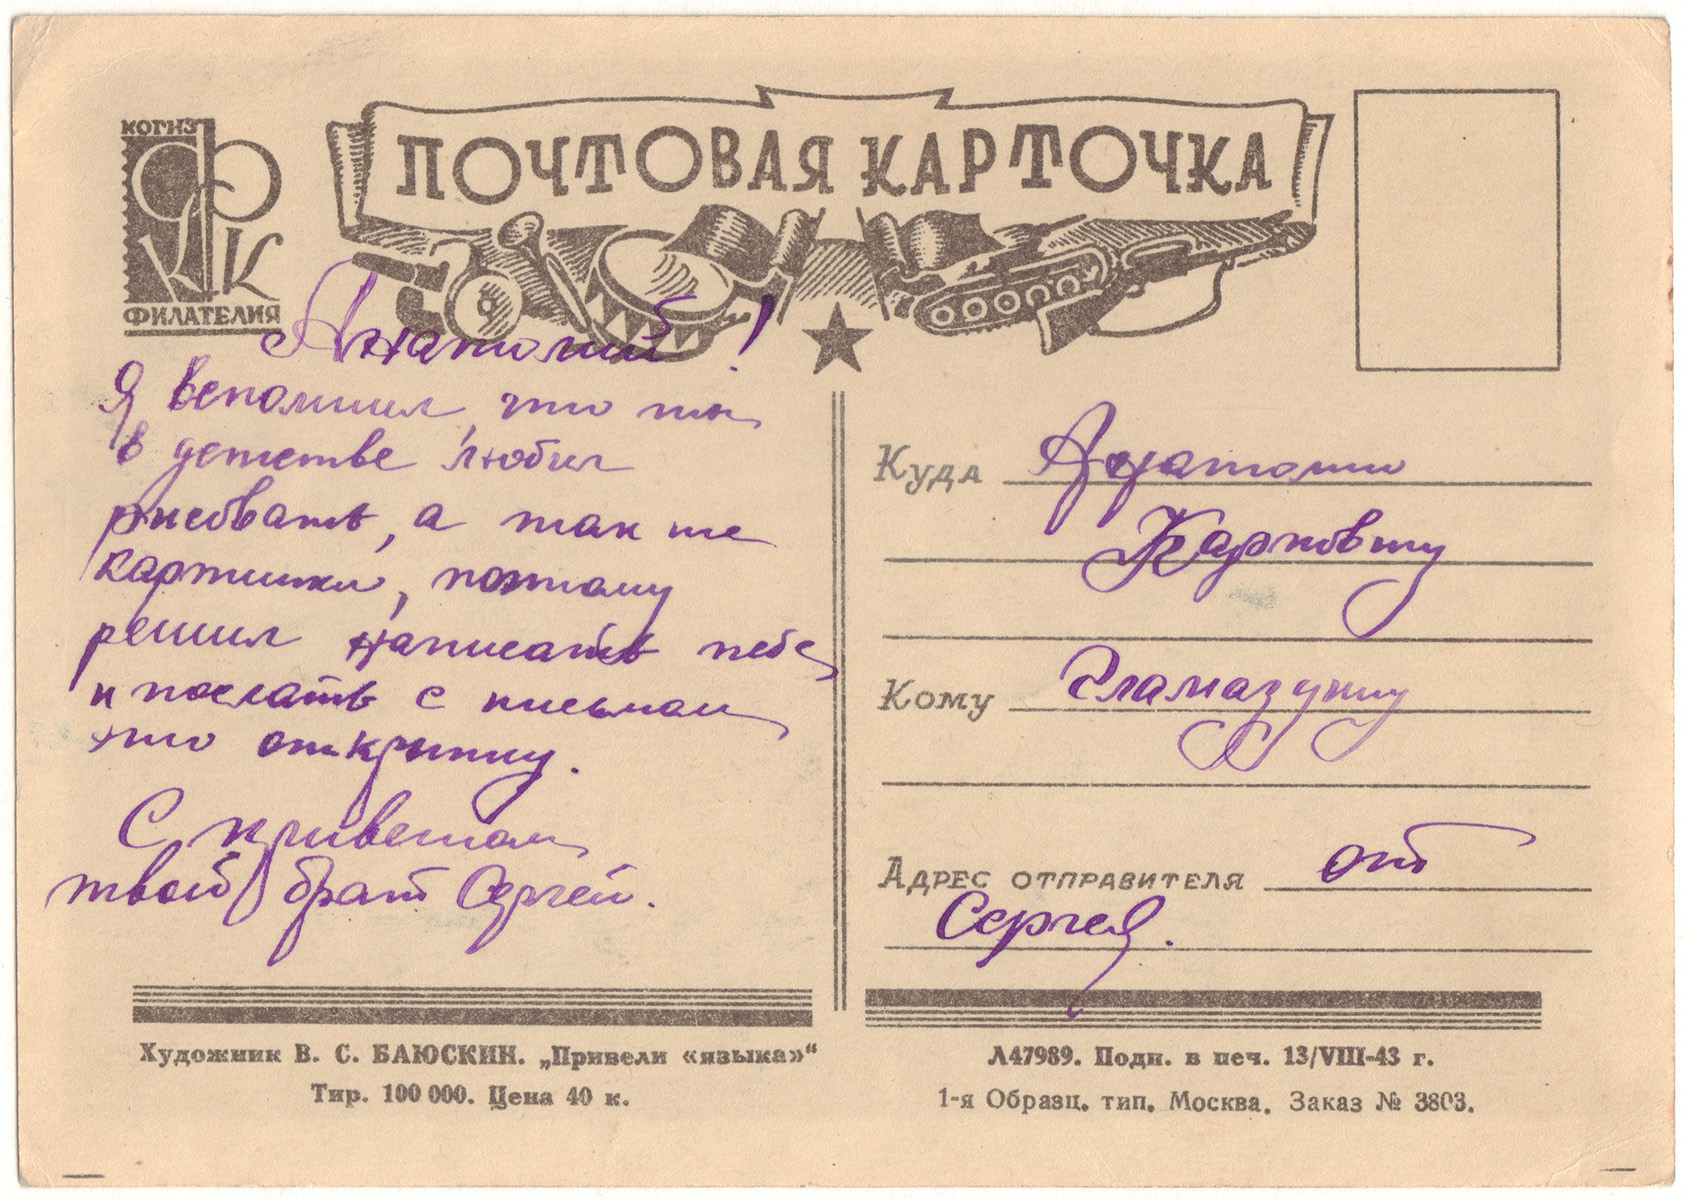 КОГИЗ
ФК
ФИЛАТЕЛИЯ
ПОЧТОВАЯ КАРТОЧКА
Анатолий!
Я вспомнил, что ты
в детстве любил
рисовать, а так же
картинки, поэтому
решил написать тебе
и послать с письмом
эту открытку.
С приветом
твой брат Сергей.
Куда Анатолию
Карповичу
Кому Гламаздину
Адрес отправителя от
Сергея.
Художник В. С. БАЮСКИН. „Привели «языка»“
Тир. 100 000. Цена 40 к.
Л47989. Подп. в печ. 13/VIII-43 г.
1-я Образц. тип. Москва. Заказ № 3803.